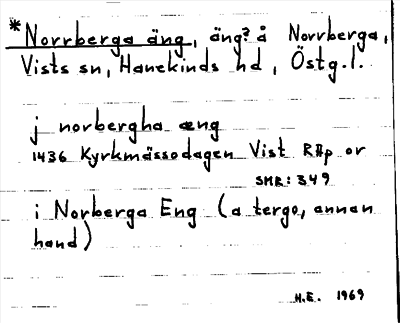 *Norrberga äng, äng? å Norrberga,
Vists sn, Hanekinds hd, Östg.l.
j norbergha æng
1436 Kyrkmässodagen Vist RAp or
SMR: 349
i Norberga Eng (a tergo, annan
hand)
H.E. 1969